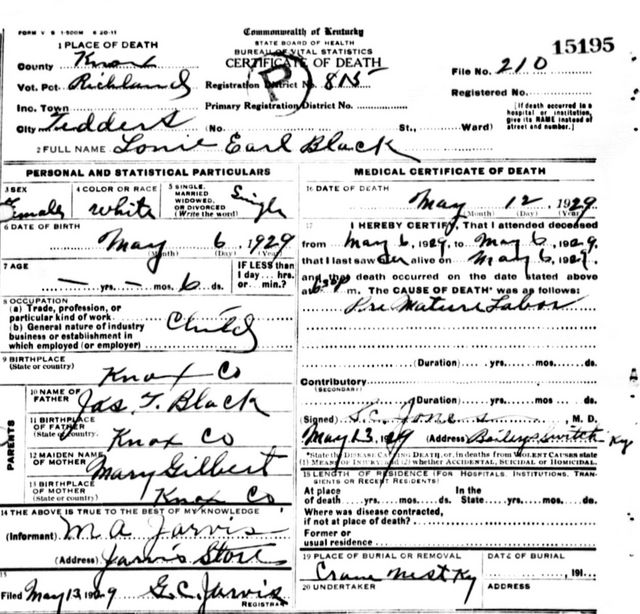 FORM V S 1-500M 6 20-11
Commonwealth of Kentucky
STATE BOARD OF HEALTH
BUREAU OF VITAL STATISTICS
CERTIFICATE OF DEATH
15195
1 PLACE OF DEATH
County Knox
File No. 210
Vot. Pct. Richland Registration District No. 815
Registered No.
Inc. Town Primary Registration District No.
[If death occurred in a hospital or institution, give its NAME instead of street and number.]
City Tedders (No. St., Ward)
2 FULL NAME Lonie Earl Black
P
PERSONAL AND STATISTICAL PARTICULARS
3 SEX Female
4 COLOR OR RACE White
5 SINGLE, MARRIED WIDOWED, OR DIVORCED (Write the word) Single
6 DATE OF BIRTH
May 6, 1929
(Month) (Day) (Year)
7 AGE
IF LESS than
I day ... hrs.
— yrs. — mos. 6 ds. or ... min.?
8 OCCUPATION
(a) Trade, profession, or
particular kind of work
(b) General nature of industry
business or establishment in
which employed (or employer)
Child
9 BIRTHPLACE
(State or country)
Knox Co
PARENTS
10 NAME OF FATHER
Jas. T. Black
11 BIRTHPLACE OF FATHER
(State or country)
Knox Co
12 MAIDEN NAME OF MOTHER
Mary Gilbert
13 BIRTHPLACE OF MOTHER
(State or country)
Knox Co
14 THE ABOVE IS TRUE TO THE BEST OF MY KNOWLEDGE
(Informant) M. A. Jarvis
(Address) Jarvis Store
15
Filed May 13, 1929 G. C. Jarvis
REGISTRAR
MEDICAL CERTIFICATE OF DEATH
16 DATE OF DEATH
May 12, 1929
(Month) (Day) (Year)
17 I HEREBY CERTIFY, That I attended deceased
from May 6, 1929, to May 6, 1929,
that I last saw her alive on May 6, 1929,
and that death occurred on the date stated above
at m. The CAUSE OF DEATH* was as follows:
Pre Mature Labor
(Duration) yrs. mos. ds.
Contributory
(SECONDARY)
(Duration) yrs. mos. ds.
(Signed) S. C. Jones M. D.
May 13, 1929 (Address) Baileys Switch Ky
*State the DISEASE CAUSING DEATH, or, in deaths from VIOLENT CAUSES state
(1) MEANS OF INJURY; and (2) whether ACCIDENTAL, SUICIDAL OR HOMICIDAL.
18 LENGTH OF RESIDENCE (FOR HOSPITALS, INSTITUTIONS, TRANSIENTS OR RECENT RESIDENTS)
At place In the
of death yrs. mos. ds. State yrs. mos. ds.
Where was disease contracted,
if not at place of death?
Former or
usual residence
19 PLACE OF BURIAL OR REMOVAL DATE OF BURIAL
Crane Nest Ky , 191
20 UNDERTAKER ADDRESS